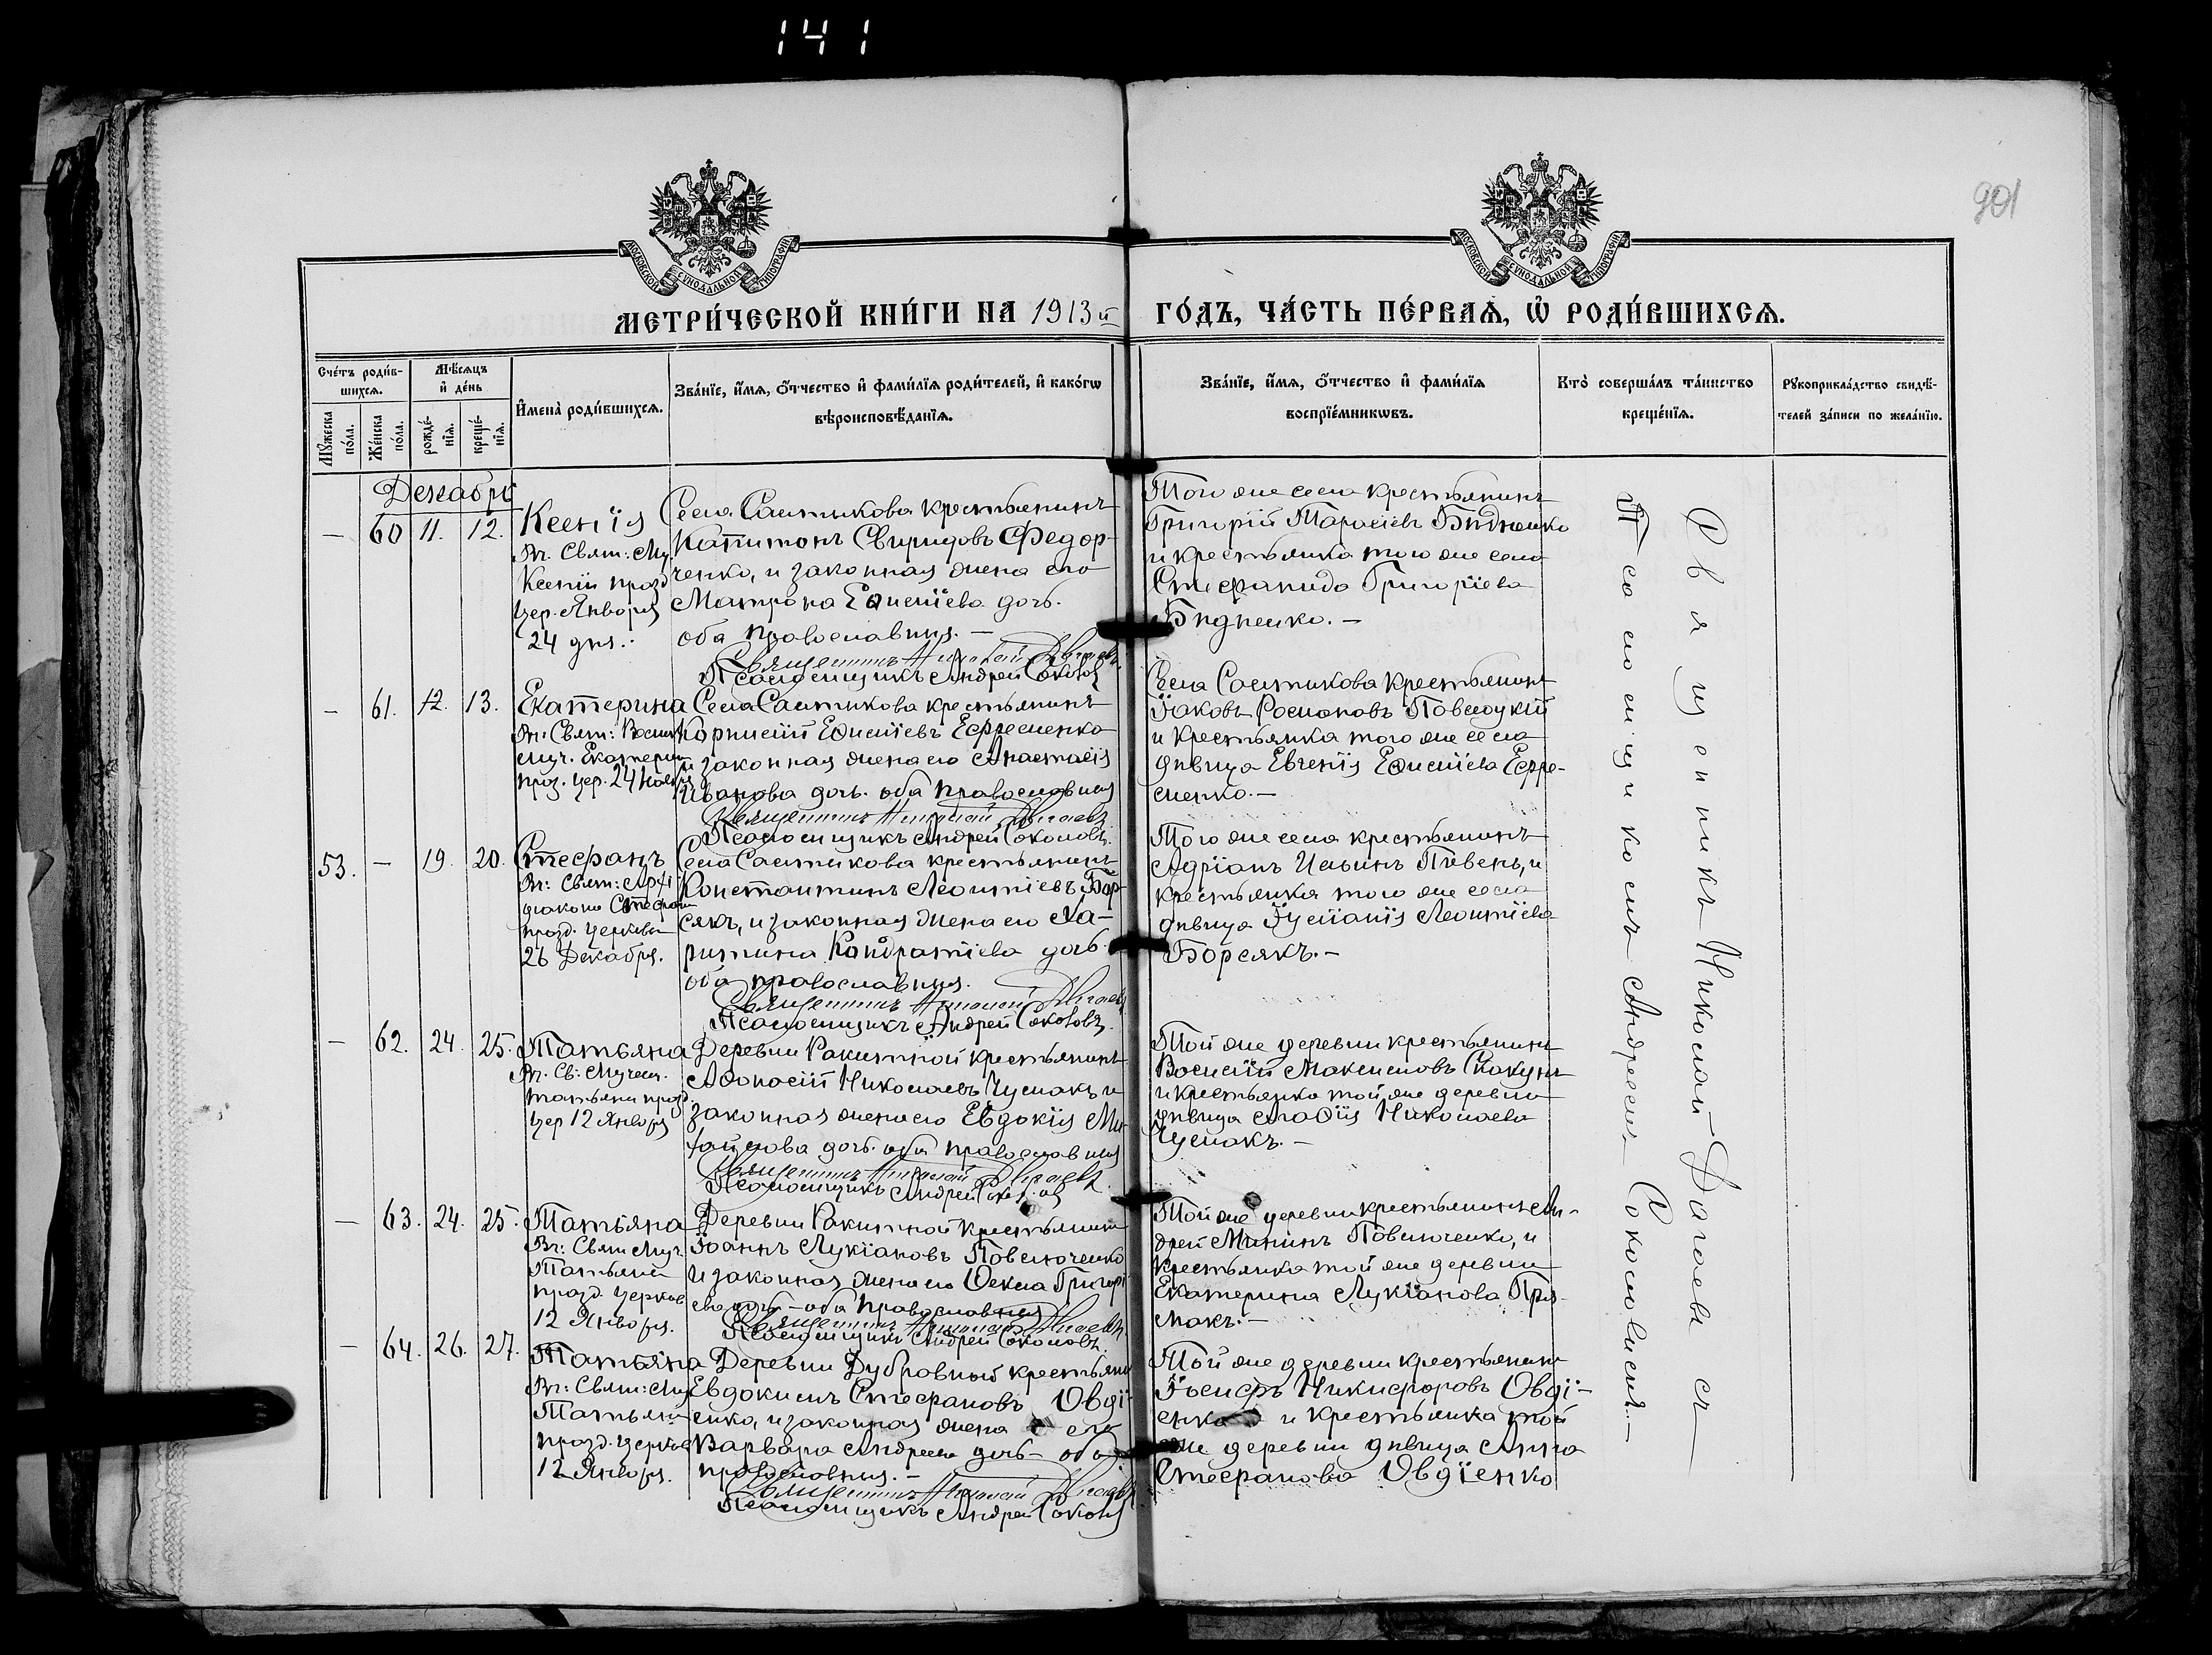 141
901
МОСКОВСКОЙ СУНОДАЛЬНОЙ ТИПОГРАФІИ
МОСКОВСКОЙ СУНОДАЛЬНОЙ ТИПОГРАФІИ
МЕТРИ́ЧЕСКОЙ КНИ́ГИ НА 1913й ГО́ДЪ, ЧА́СТЬ ПЕ́РВАѦ, Ѡ҆ РОДИ́ВШИХСѦ.
Сче́тъ роди́в-
шихсѧ.
Мꙋ́жеска
по́ла.
Же́нска
по́ла.
Мѣ́сѧцъ
и҆ де́нь
рожде́-
нїѧ.
креще́-
нїѧ.
И҆мена̀ роди́вшихсѧ.
Зва́нїе, и҆́мѧ, ѻ҆́тчество и҆ фами́лїѧ роди́телей, и҆ како́гѡ
вѣроисповѣ́данїѧ.
Зва́нїе, и҆́мѧ, ѻ҆́тчество и҆ фами́лїѧ
воспрїе́мникѡвъ.
Кто̀ соверша́лъ та́инство
креще́нїѧ.
Рꙋкоприкла́дство свидѣ́-
телей за́писи по жела́нїю.
Декабрь
— 60 11. 12.
Ксенія
Вч. Свят: Му
Ксеніи празд
цер. Января
24 дня.
Села Салтикова крестьянинъ
Капитонъ Свиридовъ Федор-
ченко, и законная жена его
Матрона Евѳиміева дочь.
оба православныя. —
Священникъ Николай Дагаевъ
Псаломщикъ Андрей Соколовъ
Того же села крестьянинъ
Григорій Тарасіевъ Бидненко
и крестьянка того же села
Стефанида Григоріева
Бидненко. —
— 61. 12. 13.
Екатерина
Вч: Свят: Велик
муч. Екатерины
праз. цер. 24 Ноября
Села Салтикова крестьянинъ
Корнилій Евѳиміевъ Ефременко
и законная жена его Анастасія
Иванова дочь. оба православныя
Священникъ Николай Дагаевъ
Псаломщикъ Андрей Соколовъ.
Села Салтикова крестьянинъ
Іаковъ Романовъ Повслоцкій
и крестьянка того же села
дѣвица Евгенія Евѳиміева Ефре-
менко. —
53. — 19. 20.
Стефанъ
Вч: Свят: Архи
діакона Стефана
празд. церковью
26 Декабря.
Села Салтикова крестьянинъ
Константинъ Леонтіевъ Бор-
сякъ, и законная жена его Ха-
ритина Кондратіева дочь.
оба православныя.
Священникъ Николай Дагаевъ
Псаломщикъ Андрей Соколовъ.
Того же села крестьянинъ
Адріанъ Ильинъ Пивень, и
крестьянка того же села
дѣвица Іуліанія Леонтіева
Борсякъ. —
— 62. 24. 25.
Татьяна
Вч. Св: Мучен.
Татьяны празд.
цер 12 Января
Деревни Ракитной крестьянинъ
Аѳанасій Николаевъ Чумакъ и
законная жена его Евдокія Ми-
хайлова дочь. оба православныя
Священникъ Николай Дагаевъ.
Псаломщикъ Андрей Соколовъ
Той же деревни крестьянинъ
Василій Максимовъ Скакунъ
и крестьянка той же деревни
дѣвица Агаѳія Николаева
Чумакъ. —
— 63. 24. 25.
Татьяна
Вч: Свят Муч.
Татьяны
празд. церков
12 Января.
Деревни Ракитной крестьянинъ
Іоаннъ Лукіановъ Повелюченко
и законная жена его Оекла Григорі
ева дочь — оба православныя
Священникъ Николай Дагаевъ
Псаломщикъ Андрей Соколовъ.
Той же деревни крестьянинъ Ан-
дрей Мининъ Повелюченко, и
крестьянка той же деревни
Екатерина Лукіанова При-
макъ. —
— 64. 26. 27.
Татьяна
Вч: Свят: Му
Татьяны
празд. церков
12 Января.
Деревни Дубровной крестьянинъ
Евдокимъ Стефановъ Овді-
енко, и законная жена его
Варвара Андреева дочь — оба
православныя. —
Священникъ Николай Дагаевъ
Псаломщикъ Андрей Соколовъ
Той же деревни крестьянинъ
Іосифъ Никифоровъ Овді-
енко и крестьянка той
же деревни дѣвица Анна
Стефанова Овдіенко
Священникъ Николай Дагаевъ съ
Псаломщикомъ Андреемъ Соколовымъ. —